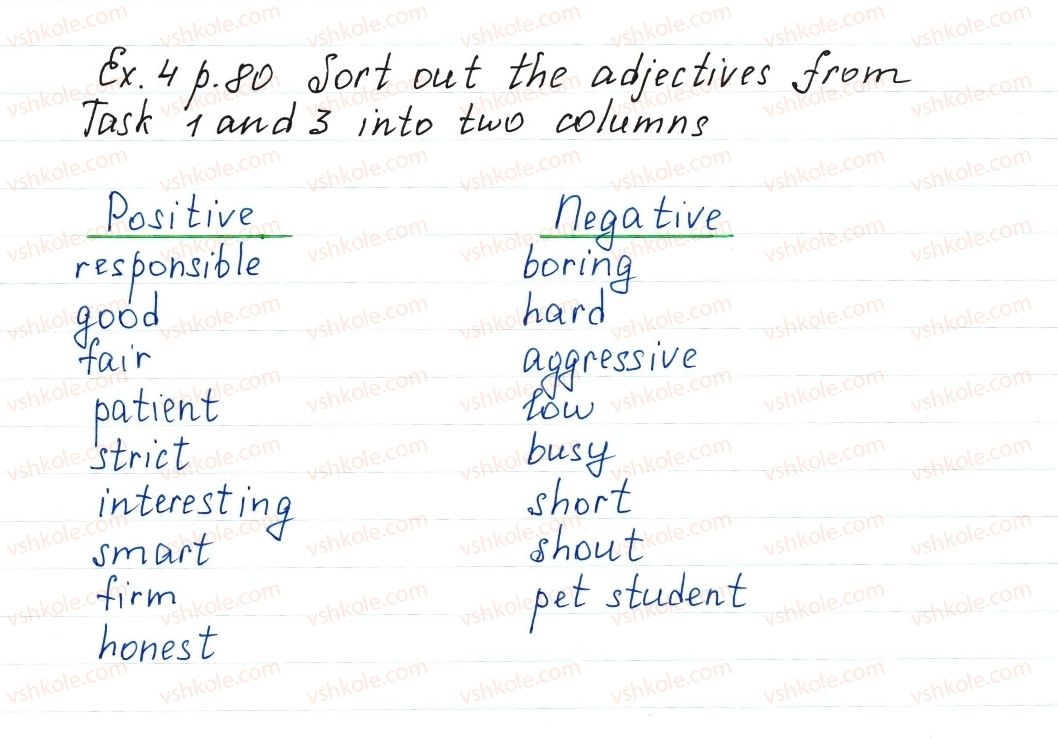 Ex. 4 p. 80 Sort out the adjectives from
Task 1 and 3 into two columns
Positive
responsible
good
fair
patient
strict
interesting
smart
firm
honest
Negative
boring
hard
aggressive
low
busy
short
shout
pet student
vshkole.com